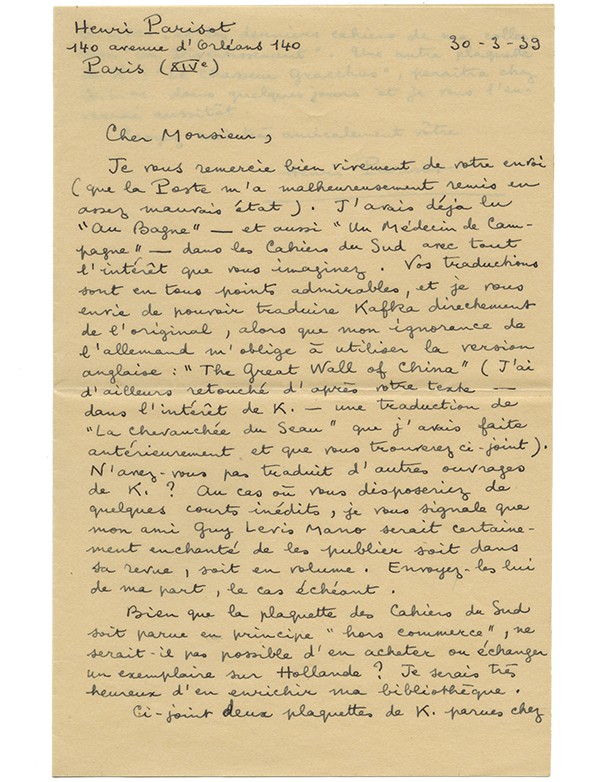 Henri Parisot
140 avenue d'Orléans 140
Paris (XIVe)
30-3-39
Cher Monsieur,
Je vous remercie bien vivement de votre envoi
(que la Poste m'a malheureusement remis en
assez mauvais état). J'avais déjà lu
"Au Bagne" — et aussi "Un Médecin de Cam-
pagne" — dans les Cahiers du Sud avec tout
l'intérêt que vous imaginez. Vos traductions
sont en tous points admirables, et je vous
envie de pouvoir traduire Kafka directement
de l'original, alors que mon ignorance de
l'allemand m'oblige à utiliser la version
anglaise : "The Great Wall of China" (J'ai
d'ailleurs retouché d'après votre texte —
dans l'intérêt de K. — une traduction de
"La Chevauchée du Seau" que j'avais faite
antérieurement et que vous trouverez ci-joint).
N'avez-vous pas traduit d'autres ouvrages
de K. ? Au cas où vous disposeriez de
quelques courts inédits, je vous signale que
mon ami Guy Levis Mano serait certaine-
ment enchanté de les publier soit dans
sa revue, soit en volume. Envoyez-les lui
de ma part, le cas échéant.
Bien que la plaquette des Cahiers du Sud
soit parue en principe "hors commerce", ne
serait-il pas possible d'en acheter ou échanger
un exemplaire sur Hollande ? Je serais très
heureux d'en enrichir ma bibliothèque.
Ci-joint deux plaquettes de K. parues chez